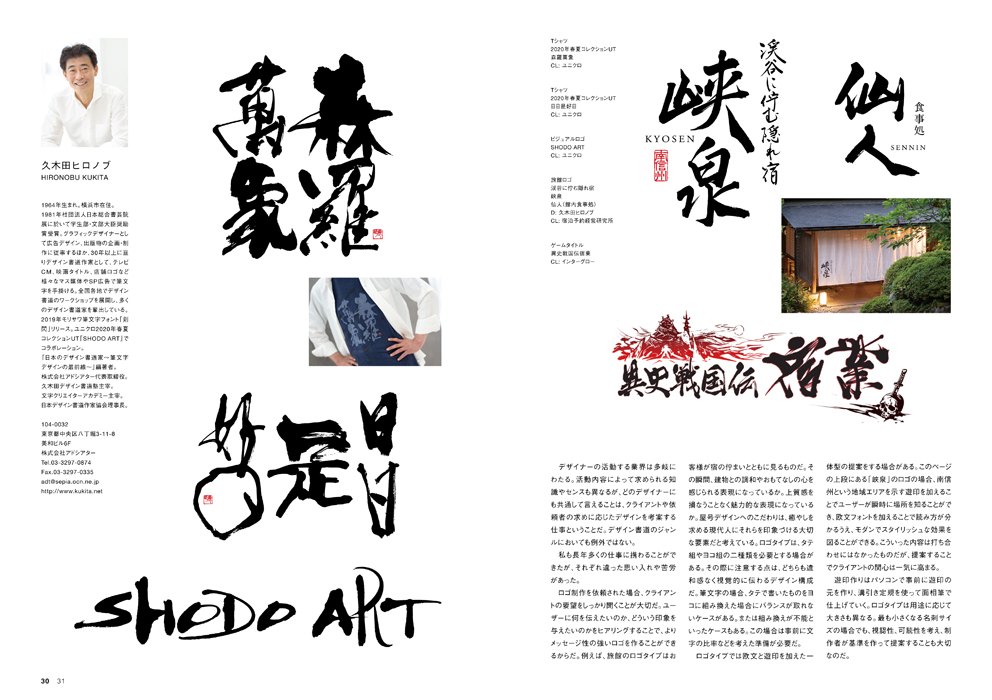 久木田ヒロノブ
HIRONOBU KUKITA
1964年生まれ。横浜市在住。
1981年社団法人日本総合書芸院
展に於いて学生部・文部大臣奨励
賞受賞。グラフィックデザイナーとし
て広告デザイン、出版物の企画・制
作に従事するほか、30年以上に亘
りデザイン書道作家として、テレビ
CM、映画タイトル、店舗ロゴなど
様々なマス媒体やSP広告で筆文
字を手掛ける。全国各地でデザイン
書道のワークショップを展開し、多く
のデザイン書道家を輩出している。
2019年モリサワ筆文字フォント「剣
閃」リリース。ユニクロ2020年春夏
コレクションUT「SHODO ART」で
コラボレーション。
『日本のデザイン書道家〜筆文字
デザインの最前線〜』編著者。
株式会社アドシアター代表取締役。
久木田デザイン書道塾主宰。
文字クリエイターアカデミー主宰。
日本デザイン書道作家協会理事長。
104-0032
東京都中央区八丁堀3-11-8
美和ビル6F
株式会社アドシアター
Tel.03-3297-0874
Fax.03-3297-0335
adt@sepia.ocn.ne.jp
http://www.kukita.net
森羅
萬象
日日
是
好日
SHODO ART
30 31
Tシャツ
2020年春夏コレクションUT
森羅萬象
CL: ユニクロ
Tシャツ
2020年春夏コレクションUT
日日是好日
CL: ユニクロ
ビジュアルロゴ
SHODO ART
CL: ユニクロ
旅館ロゴ
渓谷に佇む隠れ宿
峡泉
仙人(館内食事処)
D: 久木田ヒロノブ
CL: 宿泊予約経営研究所
ゲームタイトル
異史戦国伝宿業
CL: インターグロー
渓谷に佇む隠れ宿
峡泉
KYOSEN
南信州
食事処
仙人
SENNIN
峡泉
異史戦国伝 宿業
デザイナーの活動する業界は多岐に
わたる。活動内容によって求められる知
識やセンスも異なるが、どのデザイナーに
も共通して言えることは、クライアントや依
頼者の求めに応じたデザインを考案する
仕事ということだ。デザイン書道のジャン
ルにおいても例外ではない。
私も長年多くの仕事に携わることがで
きたが、それぞれ違った思い入れや苦労
があった。
ロゴ制作を依頼された場合、クライアン
トの要望をしっかり聞くことが大切だ。ユー
ザーに何を伝えたいのか、どういう印象を
与えたいのかをヒアリングすることで、より
メッセージ性の強いロゴを作ることができ
るからだ。例えば、旅館のロゴタイプはお
客様が宿の佇まいとともに見るものだ。そ
の瞬間、建物との調和やおもてなしの心を
感じられる表現になっているか。上質感を
損なうことなく魅力的な表現になっている
か。屋号デザインへのこだわりは、癒やしを
求める現代人にそれらを印象づける大切
な要素だと考えている。ロゴタイプは、タテ
組やヨコ組の二種類を必要とする場合が
ある。その際に注意する点は、どちらも違
和感なく視覚的に伝わるデザイン構成
だ。筆文字の場合、タテで書いたものをヨ
コに組み換えた場合にバランスが取れな
いケースがある。または組み換えが不能と
いったケースもある。この場合は事前に文
字の比率などを考えた準備が必要だ。
ロゴタイプでは欧文と遊印を加えた一
体型の提案をする場合がある。このページ
の上段にある「峡泉」のロゴの場合、南信
州という地域エリアを示す遊印を加えるこ
とでユーザーが瞬時に場所を知ることがで
き、欧文フォントを加えることで読み方が分
かるうえ、モダンでスタイリッシュな効果を
図ることができる。こういった内容は打ち合
わせにはなかったものだが、提案すること
でクライアントの関心は一気に高まる。
遊印作りはパソコンで事前に遊印の
元を作り、溝引き定規を使って面相筆で
仕上げていく。ロゴタイプは用途に応じて
大きさも異なる。最も小さくなる名刺サイ
ズの場合でも、視認性、可読性を考え、制
作者が基準を作って提案することも大切
なのだ。